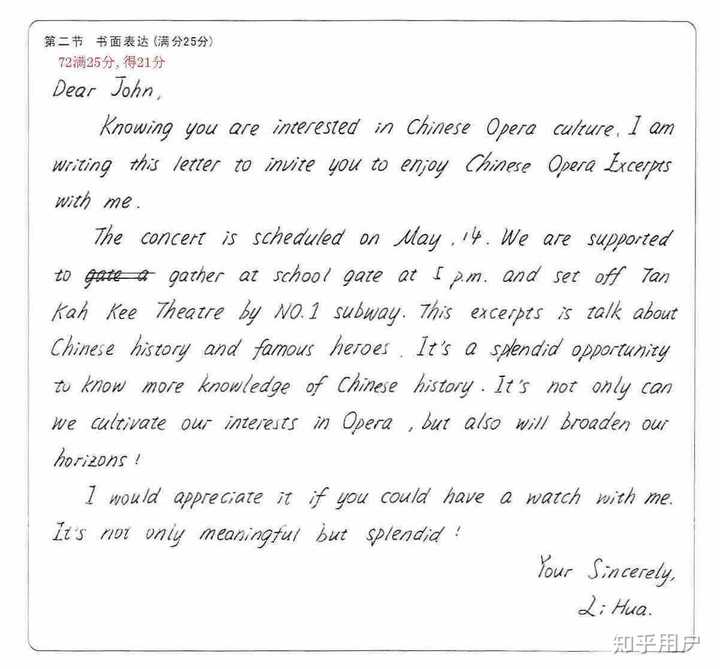 第二节 书面表达(满分25分)
72满25分, 得21分
Dear John,
Knowing you are interested in Chinese Opera culture, I am
writing this letter to invite you to enjoy Chinese Opera Excerpts
with me.
The concert is scheduled on May, 14. We are supported
to gate a gather at school gate at 5 p.m. and set off Tan
Kah Kee Theatre by NO.1 subway. This excerpts is talk about
Chinese history and famous heroes. It's a splendid opportunity
to know more knowledge of Chinese history. It's not only can
we cultivate our interests in Opera, but also will broaden our
horizons!
I would appreciate it if you could have a watch with me.
It's not only meaningful but splendid!
Your Sincerely,
Li Hua.
知乎用户